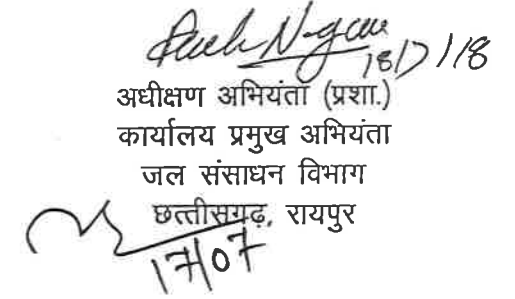 18/7/18
अधीक्षण अभियंता (प्रशा.)
कार्यालय प्रमुख अभियंता
जल संसाधन विभाग
छत्तीसगढ़, रायपुर
17/07